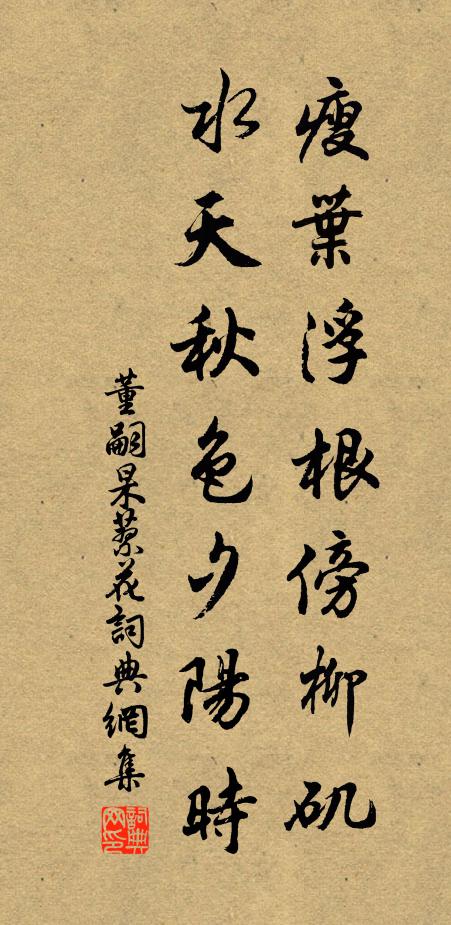 瘦葉浮根傍柳矶
水天秋色夕陽時
董嗣杲蓼花詞典網集
詞典網印